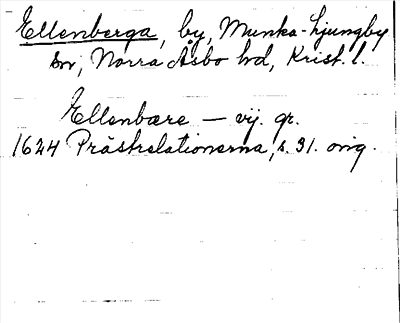 Ellenberga, by, Munka-Ljungby
sn, Norra Åsbo hd, Krist. l.
Ellenbære — vij. gr.
1624 Prästrelationerna, s. 31. orig.